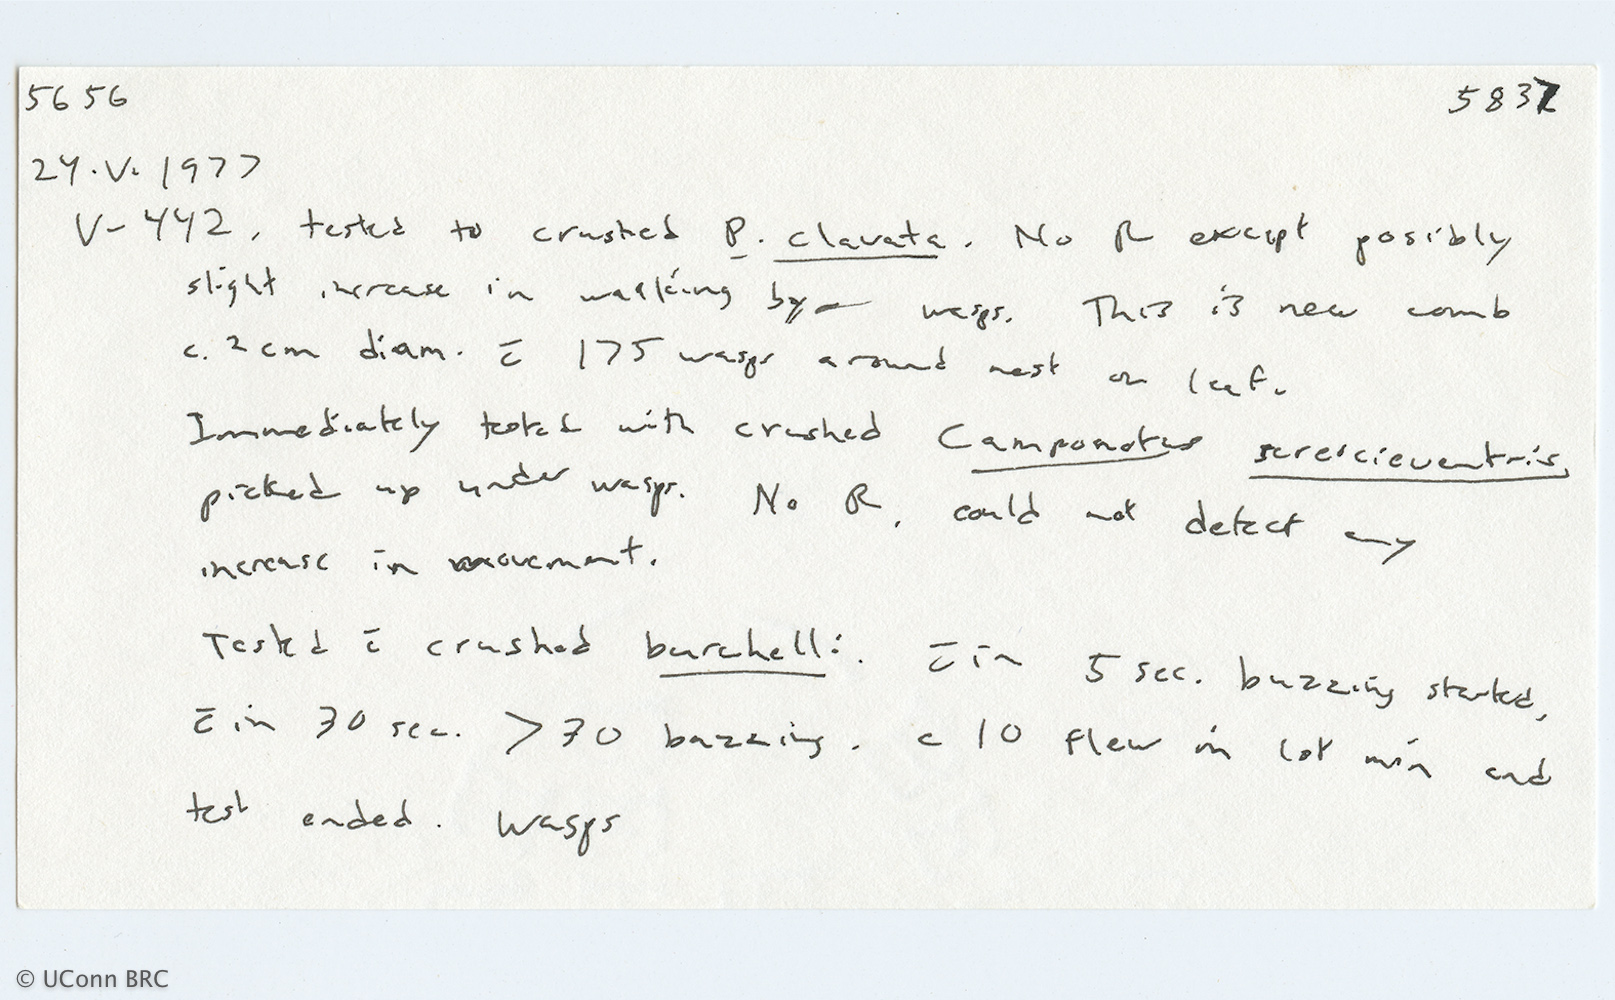 5656 5837
24.V.1977
V-442, tested to crushed P. clavata. No R except possibly
slight increase in walking by wasps. This is new comb
c. 2 cm diam. c̄ 175 wasps around nest on leaf.
Immediately tested with crushed Camponotus sereicieventris,
picked up under wasps. No R, could not detect any
increase in movement.
Tested c̄ crushed burchelli. c̄in 5 sec. buzzing started,
c̄in 30 sec. >30 buzzing. c 10 flew in 1st min and
test ended. Wasps
© UConn BRC